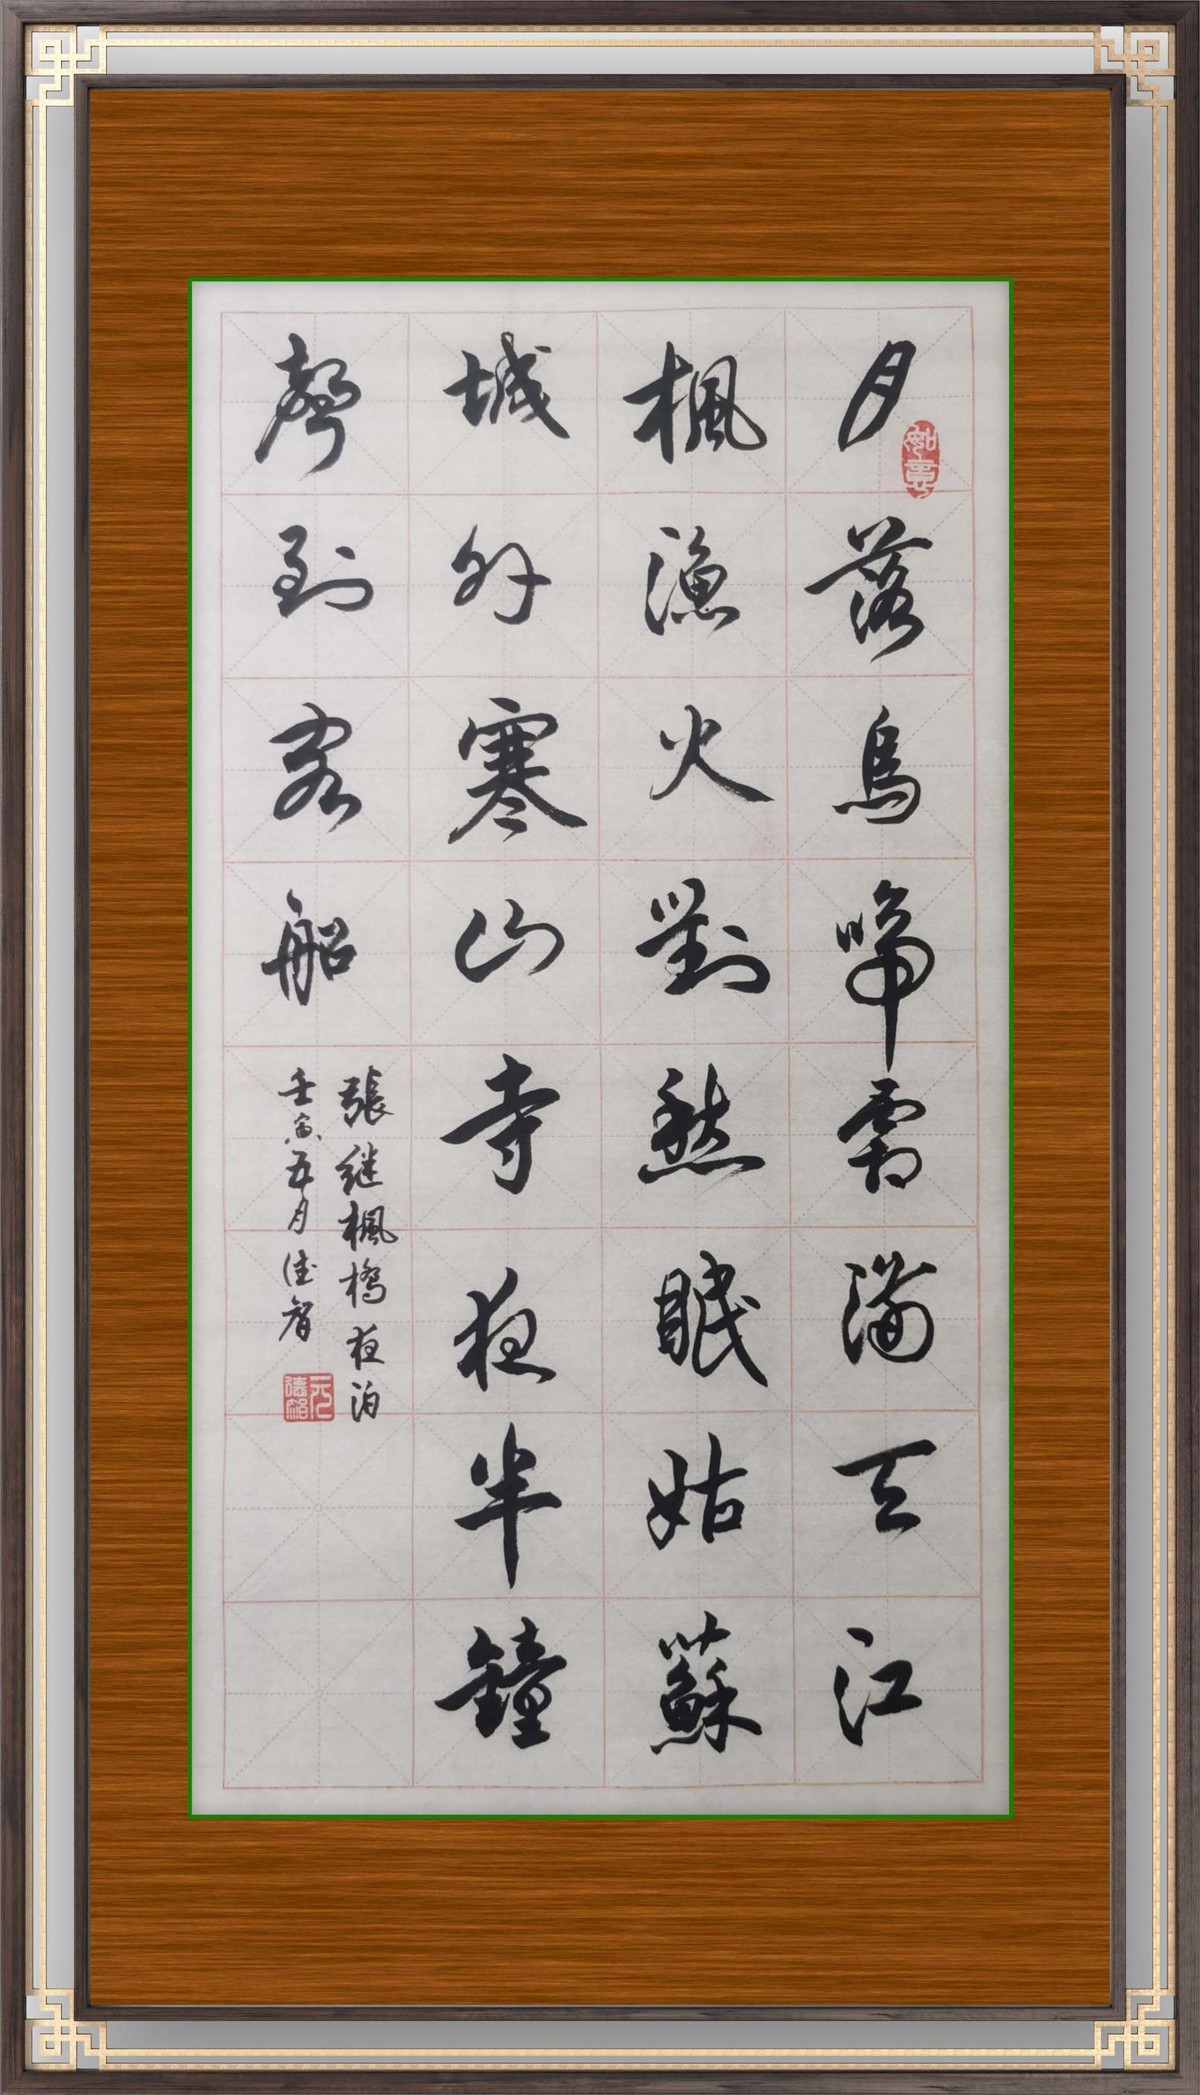 月落烏啼霜滿天江
楓漁火對愁眠姑蘇
城外寒山寺夜半鐘
聲到客船
張继楓橋夜泊
壬寅五月佳智
如意